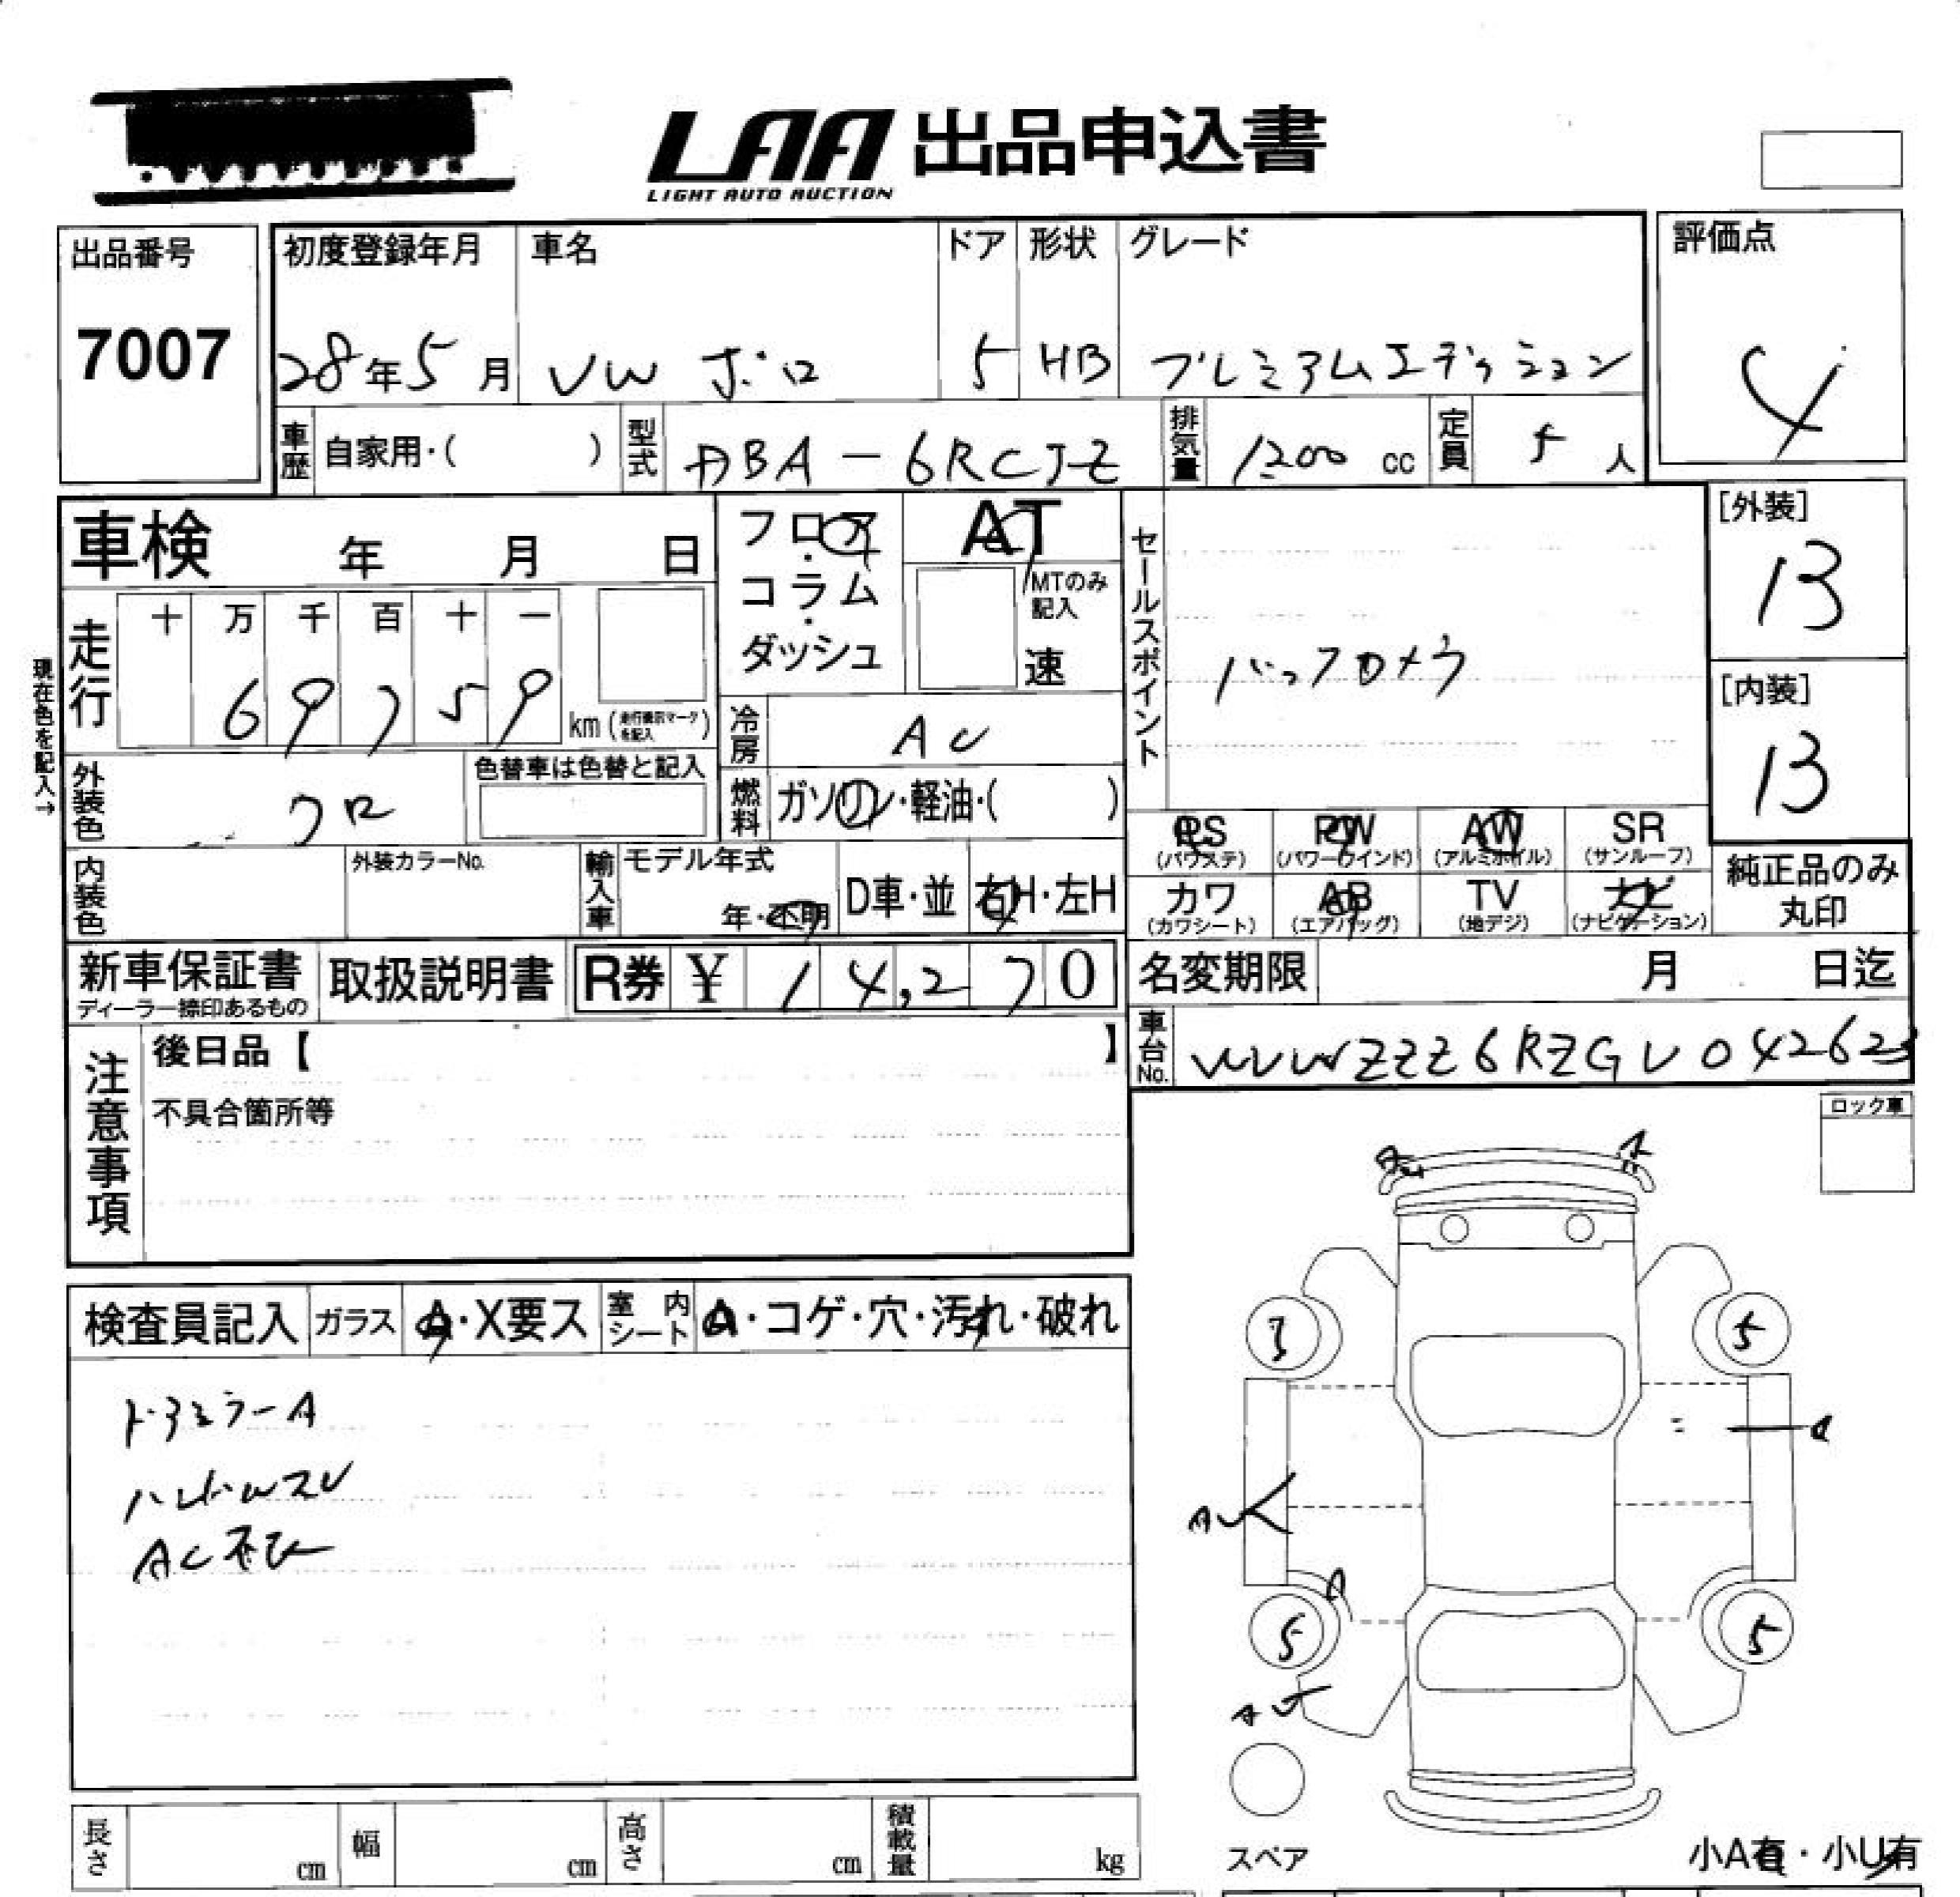 LAA 出品申込書
LIGHT AUTO AUCTION
出品番号 初度登録年月 車名 ドア 形状 グレード 評価点
7007 28年5月 VW ポロ 5 HB プレミアムエディション 4
車歴 自家用・( ) 型式 DBA-6RCJZ 排気量 1200 cc 定員 5 人
車検 年 月 日
フロア・コラム・ダッシュ
AT
MTのみ記入
速
セールスポイント
バックカメラ
[外装]
13
[内装]
13
現在色を記入→
走行 十 万 千 百 十 一
69759 km (走行表示マークを記入)
冷房 AC
外装色 クロ 色替車は色替と記入
燃料 ガソリン・軽油・( )
PS (パワステ) PW (パワーウインド) AW (アルミホイル) SR (サンルーフ)
カワ (カワシート) AB (エアバッグ) TV (地デジ) ナビ (ナビゲーション)
純正品のみ丸印
内装色 外装カラーNo. 輸入車 モデル年式 年・不明 D車・並 右H・左H
新車保証書 ディーラー捺印あるもの 取扱説明書 R券 ¥ 14,270
名変期限 月 日迄
車台No. WVWZZZ6RZGU042623
注意事項
後日品【 】
不具合箇所等
ロック車
検査員記入 ガラス A・X要ス 室内シート A・コゲ・穴・汚れ・破れ
ドアミラーA
ハンドルスレ
AC
A
A
3 5
A
AU
A
5 5
AU
スペア
小A有・小U有
長さ cm 幅 cm 高さ cm 積載量 kg